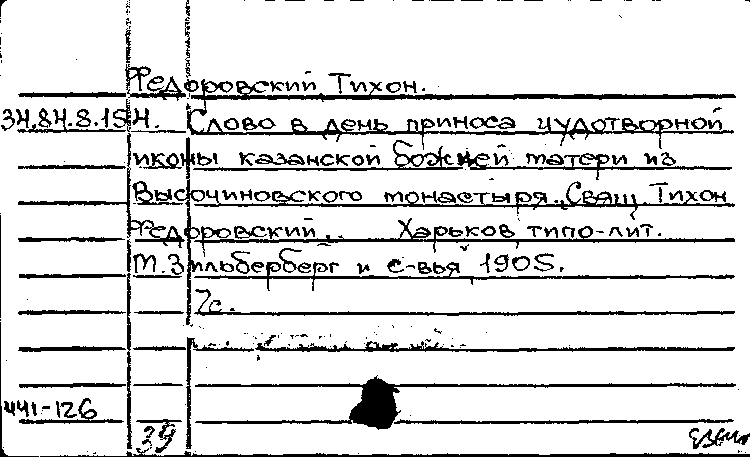 Федоровский, Тихон.
34.84.8.154. Слово в день приноса чудотворной
иконы казанской божией матери из
Высочиновского монастыря. Свящ. Тихон
Федоровский. Харьков, типо-лит.
М. Зильберберг и с-вья, 1905.
7с.
441-126
39